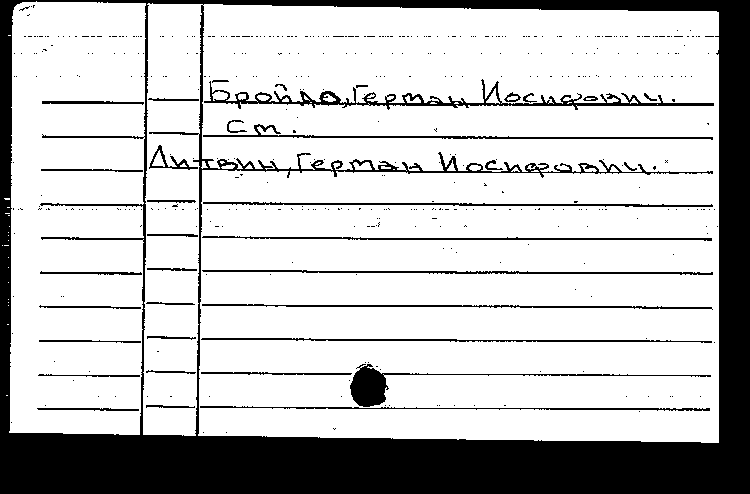 Бройдо, Герман Иосифович.
см.
Литвин, Герман Иосифович.